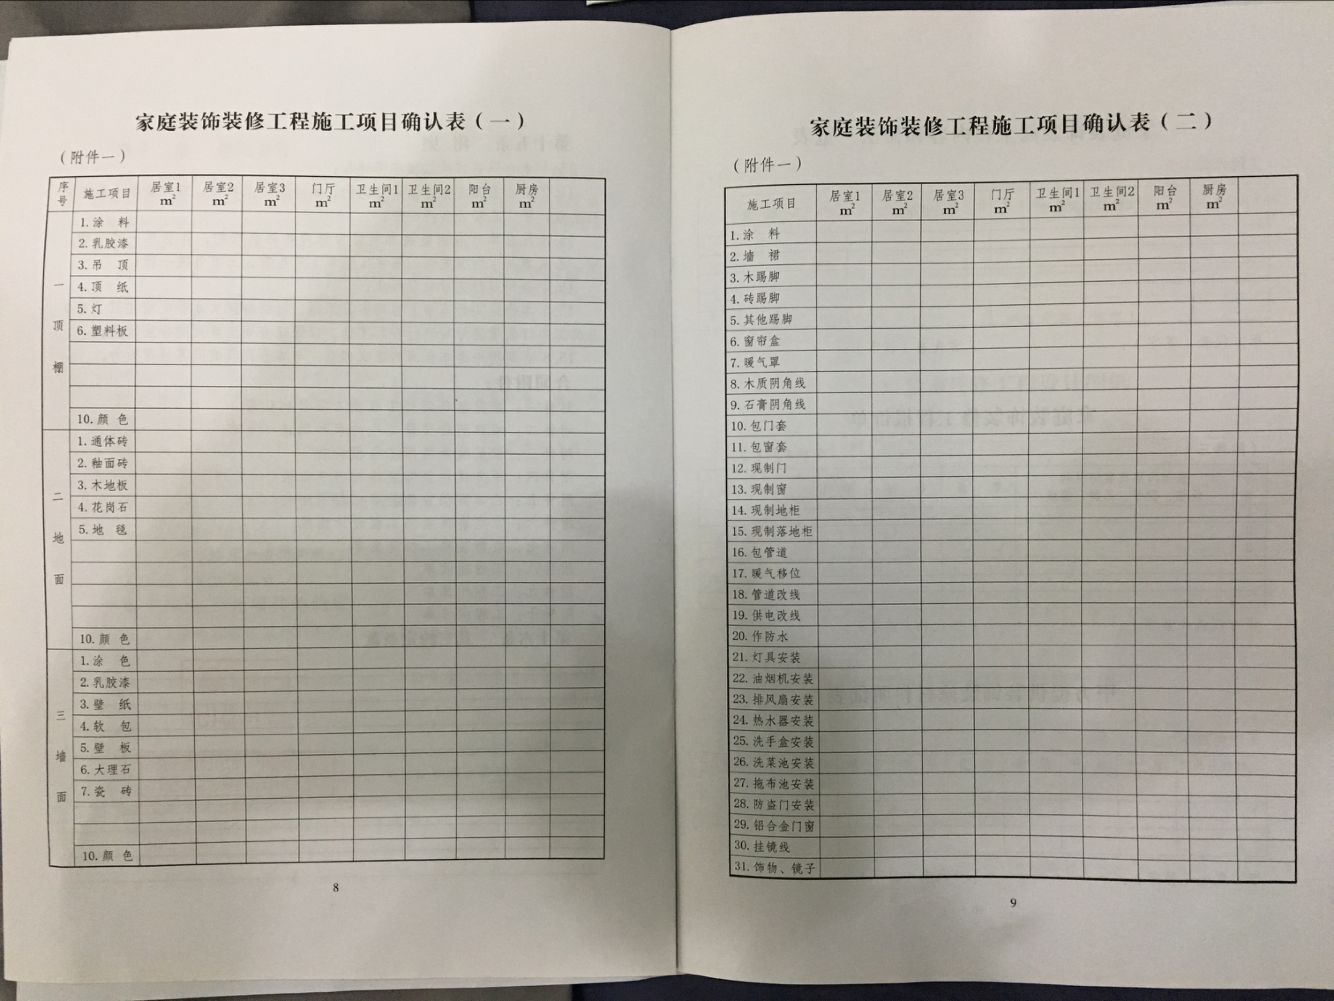 家庭装饰装修工程施工项目确认表(一)
(附件一)
序号 施工项目 居室1 m² 居室2 m² 居室3 m² 门厅 m² 卫生间1 m² 卫生间2 m² 阳台 m² 厨房 m²
一 顶 棚
1.涂 料
2.乳胶漆
3.吊 顶
4.顶 纸
5.灯
6.塑料板
10.颜 色
二 地 面
1.通体砖
2.釉面砖
3.木地板
4.花岗石
5.地 毯
10.颜 色
三 墙 面
1.涂 色
2.乳胶漆
3.壁 纸
4.软 包
5.壁 板
6.大理石
7.瓷 砖
10.颜 色
8
家庭装饰装修工程施工项目确认表(二)
(附件一)
施工项目 居室1 m² 居室2 m² 居室3 m² 门厅 m² 卫生间1 m² 卫生间2 m² 阳台 m² 厨房 m²
1.涂 料
2.墙 裙
3.木踢脚
4.砖踢脚
5.其他踢脚
6.窗帘盒
7.暖气罩
8.木质阴角线
9.石膏阴角线
10.包门套
11.包窗套
12.现制门
13.现制窗
14.现制地柜
15.现制落地柜
16.包管道
17.暖气移位
18.管道改线
19.供电改线
20.作防水
21.灯具安装
22.油烟机安装
23.排风扇安装
24.热水器安装
25.洗手盒安装
26.洗菜池安装
27.拖布池安装
28.防盗门安装
29.铝合金门窗
30.挂镜线
31.饰物、镜子
9